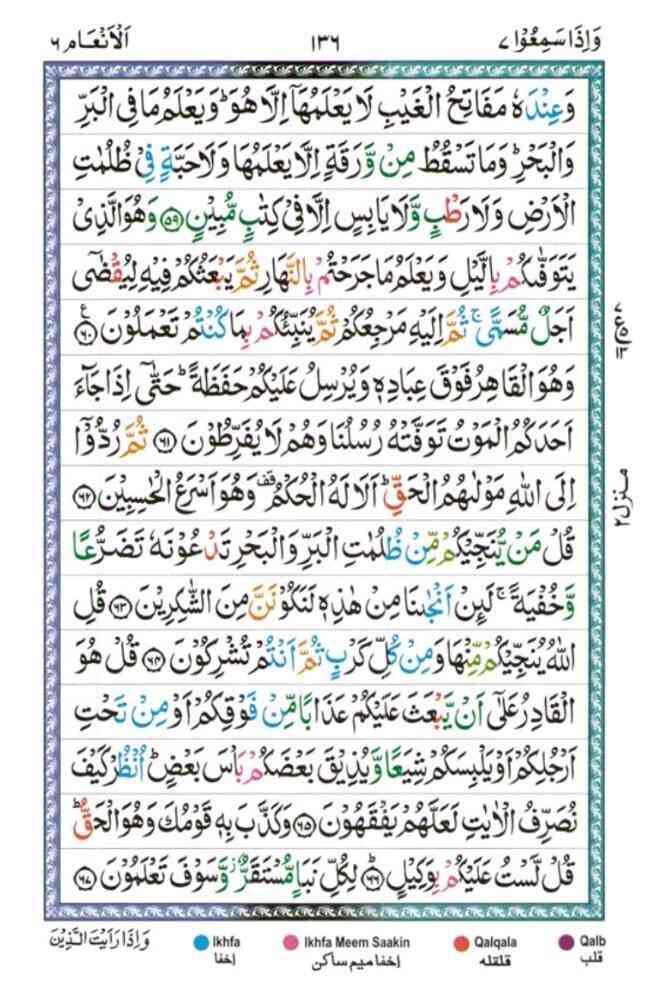 وَاِذَا سَمِعُوْا ٧ ١٣٦ اَلْاَنْعَام ٦
وَعِنْدَهٗ مَفَاتِحُ الْغَيْبِ لَا يَعْلَمُهَاۤ اِلَّا هُوَ ؕ وَيَعْلَمُ مَا فِى الْبَرِّ
وَالْبَحْرِ ؕ وَمَا تَسْقُطُ مِنْ وَّرَقَةٍ اِلَّا يَعْلَمُهَا وَلَا حَبَّةٍ فِىْ ظُلُمٰتِ
الْاَرْضِ وَلَا رَطْبٍ وَّلَا يَابِسٍ اِلَّا فِىْ كِتٰبٍ مُّبِيْنٍ ﴿٥٩﴾ وَهُوَ الَّذِىْ
يَتَوَفّٰٮكُمْ بِالَّيْلِ وَيَعْلَمُ مَا جَرَحْتُمْ بِالنَّهَارِ ثُمَّ يَبْعَثُكُمْ فِيْهِ لِيُقْضٰٓى
اَجَلٌ مُّسَمًّى ۚ ثُمَّ اِلَيْهِ مَرْجِعُكُمْ ثُمَّ يُنَبِّئُكُمْ بِمَا كُنْتُمْ تَعْمَلُوْنَ ﴿٦٠﴾ ع
وَهُوَ الْقَاهِرُ فَوْقَ عِبَادِهٖ وَيُرْسِلُ عَلَيْكُمْ حَفَظَةً ؕ حَتّٰٓى اِذَا جَآءَ
اَحَدَكُمُ الْمَوْتُ تَوَفَّتْهُ رُسُلُنَا وَهُمْ لَا يُفَرِّطُوْنَ ﴿٦١﴾ ثُمَّ رُدُّوْۤا
اِلَى اللّٰهِ مَوْلٰٮهُمُ الْحَقِّ ؕ اَلَا لَهُ الْحُكْمُ ۟ قف وَهُوَ اَسْرَعُ الْحٰسِبِيْنَ ﴿٦٢﴾
قُلْ مَنْ يُّنَجِّيْكُمْ مِّنْ ظُلُمٰتِ الْبَرِّ وَالْبَحْرِ تَدْعُوْنَهٗ تَضَرُّعًا
وَّخُفْيَةً ۚ لَٮِٕنْ اَنْجٰٮنَا مِنْ هٰذِهٖ لَنَكُوْنَنَّ مِنَ الشّٰكِرِيْنَ ﴿٦٣﴾ قُلِ
اللّٰهُ يُنَجِّيْكُمْ مِّنْهَا وَمِنْ كُلِّ كَرْبٍ ثُمَّ اَنْتُمْ تُشْرِكُوْنَ ﴿٦٤﴾ قُلْ هُوَ
الْقَادِرُ عَلٰٓى اَنْ يَّبْعَثَ عَلَيْكُمْ عَذَابًا مِّنْ فَوْقِكُمْ اَوْ مِنْ تَحْتِ
اَرْجُلِكُمْ اَوْ يَلْبِسَكُمْ شِيَعًا وَّيُذِيْقَ بَعْضَكُمْ بَاْسَ بَعْضٍ ؕ اُنْظُرْ كَيْفَ
نُصَرِّفُ الْاٰيٰتِ لَعَلَّهُمْ يَفْقَهُوْنَ ﴿٦٥﴾ وَكَذَّبَ بِهٖ قَوْمُكَ وَهُوَ الْحَقُّ ؕ
قُلْ لَّسْتُ عَلَيْكُمْ بِوَكِيْلٍ ؕ ﴿٦٦﴾ لِكُلِّ نَبَاٍ مُّسْتَقَرٌّ ۫ وَّسَوْفَ تَعْلَمُوْنَ ﴿٦٧﴾
منزل ٢
وَاِذَا رَاَيْتَ الَّذِيْنَ
Ikhfa Ikhfa Meem Saakin Qalqala Qalb
اخفا اخفا میم ساکن قلقله قلب